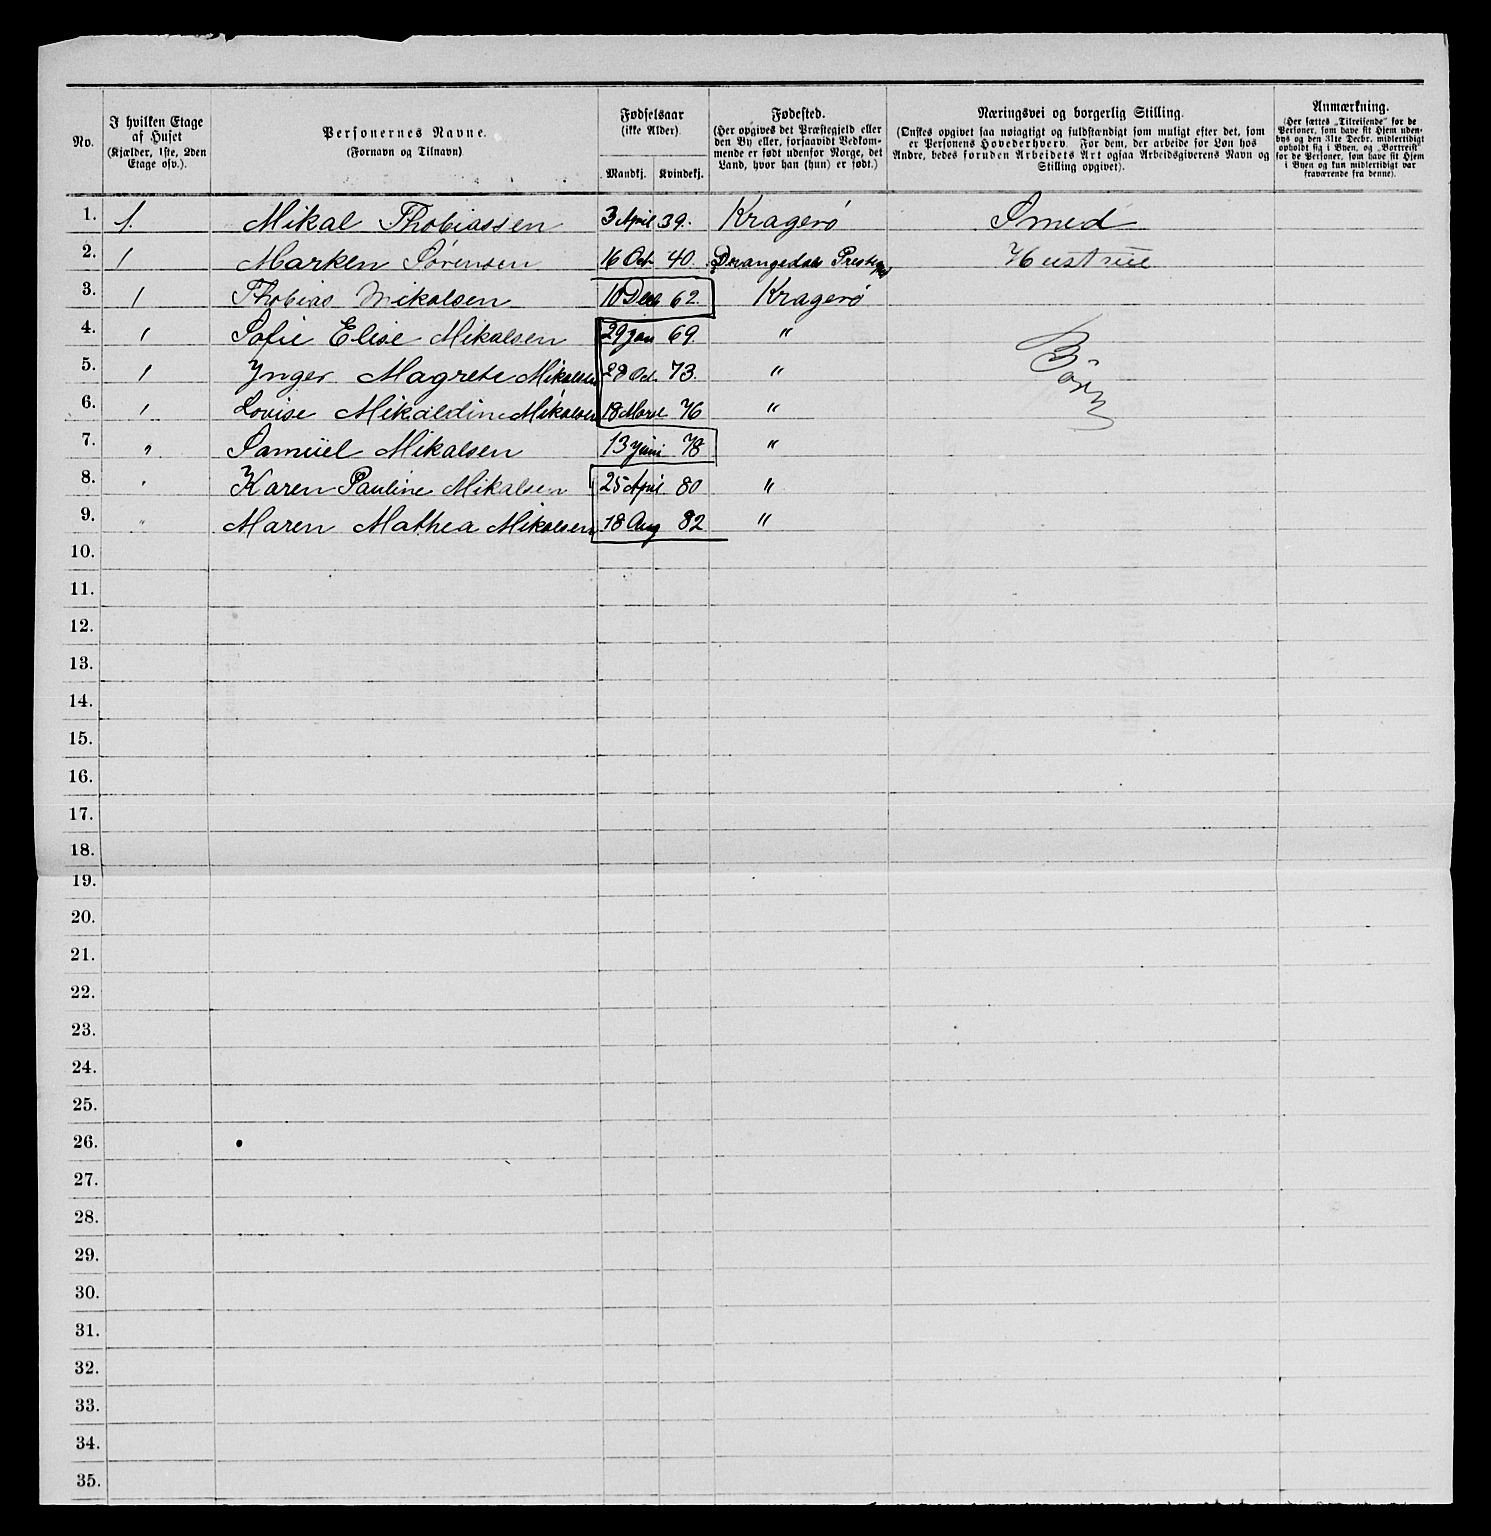 No.
I hvilken Etage af Huset (Kjælder, 1ste, 2den Etage osv.).
Personernes Navne. (Fornavn og Tilnavn)
Fødselsaar (ikke Alder).
Mandkj. Kvindekj.
Fødested. (Her opgives det Præstegjeld eller den By eller, forsaavidt Vedkommende er født udenfor Norge, det Land, hvor han (hun) er født.)
Næringsvei og borgerlig Stilling. (Ønskes opgivet saa nøiagtigt og fuldstændigt som muligt efter det, som er Personens Hovederhverv. For dem, der arbeide for Løn hos Andre, bedes foruden Arbeidets Art ogsaa Arbeidsgiverens Navn og Stilling opgivet).
Anmærkning. (Her sættes „Tilreisende“ for de Personer, som have sit Hjem udenbys og den 31te Decbr. midlertidigt opholdt sig i Byen, og „Bortreist“ for de Personer, som have sit Hjem i Byen og kun midlertidigt var fraværende fra denne).
1. 1. Mikal Thobiassen 3 April 39. Kragerø Smed
2. 1 Marken Sørensen 16 Oct. 40. Drangedals Prestegj Hustrue
3. 1 Thobias Mikalsen 10 Decb 62. Kragerø
4. 1 Sofie Elise Mikalsen 29 Jan 69. "
5. 1 Ynger Magrete Mikalsen 28 Oct. 73. " Børn
6. 1 Lovise Mikaldine Mikalsen 18 Mars 76 "
7. " Samuel Mikalsen 13 Juni 78 "
8. " Karen Pauline Mikalsen 25 April 80 "
9. " Maren Mathea Mikalsen 18 Aug 82 "
10.
11.
12.
13.
14.
15.
16.
17.
18.
19.
20.
21.
22.
23.
24.
25.
26.
27.
28.
29.
30.
31.
32.
33.
34.
35.